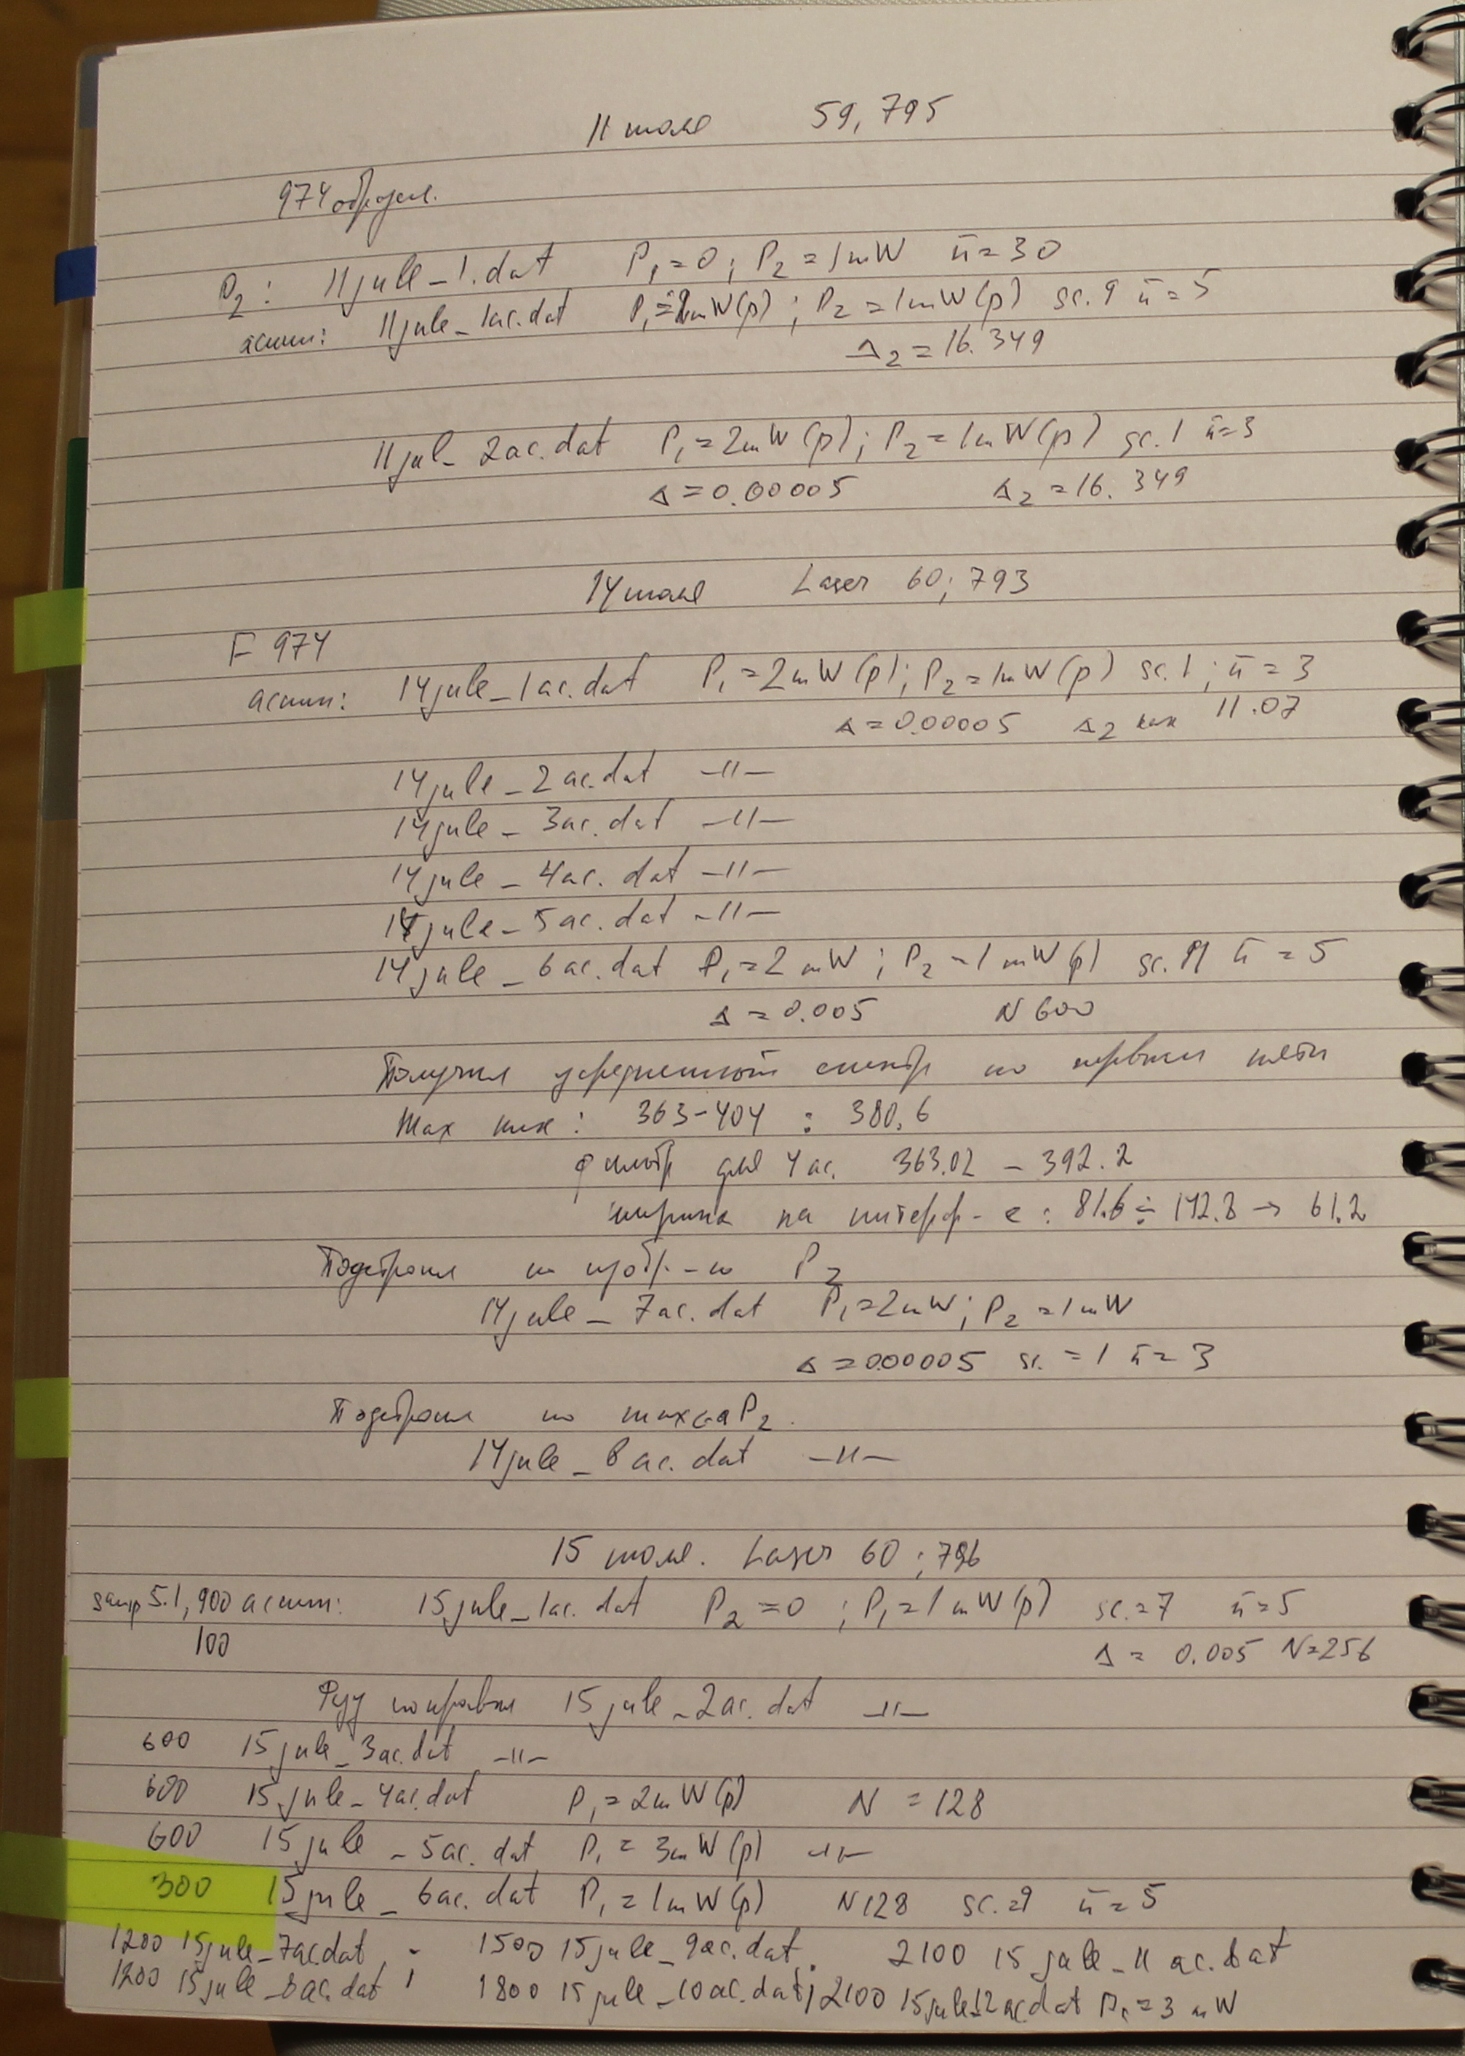 11 июля 59,795
974 образец.
P₂: 11jule_1.dat P₁=0; P₂=1mW п̄=30
асим: 11jule_1ac.dat P₁=2mW(p); P₂=1mW(p) sc.9 п̄=5
Δ₂=16.349
11jul_2ac.dat P₁=2mW(p); P₂=1mW(p) sc.1 п̄=3
Δ=0.00005 Δ₂=16.349
14 июля Laser 60;793
F 974
асим: 14jule_1ac.dat P₁=2mW(p); P₂=1mW(p) sc.1; п̄=3
Δ=0.00005 Δ₂ 11.07
14jule_2ac.dat -11-
14jule_3ac.dat -11-
14jule_4ac.dat -11-
14jule_5ac.dat -11-
14jule_6ac.dat P₁=2mW; P₂=1mW(p) sc. п̄=5
Δ=0.005 N 600
Получил усредненный спектр по первым пяти
Max пик: 363-404 : 380,6
фильтр для 4ac. 363.02 - 392.2
ширина на интерф-е: 81.6÷142.8 → 61.2
Подстроил по P₂
14jule_7ac.dat P₁=2mW; P₂=1mW
Δ=0.00005 sc.=1 п̄=3
Подстроил по P₂.
14jule_8ac.dat -11-
15 июля. Laser 60;796
samp 5.1, 900 асим: 15jule_1ac.dat P₂=0; P₁=1mW(p) sc.=7 п̄=5
100 Δ=0.005 N=256
поправил 15jule_2ac.dat -11-
600 15jule_3ac.dat -11-
600 15jule_4ac.dat P₁=2mW(p) N=128
600 15jule_5ac.dat P₁=3mW(p) -11-
300 15jule_6ac.dat P₁=1mW(p) N128 sc.=9 п̄=5
1200 15jule_7ac.dat 1500 15jule_9ac.dat. 2100 15jule_11ac.dat
1200 15jule_8ac.dat 1800 15jule_10ac.dat; 2100 15jule_12ac.dat P₁=3mW